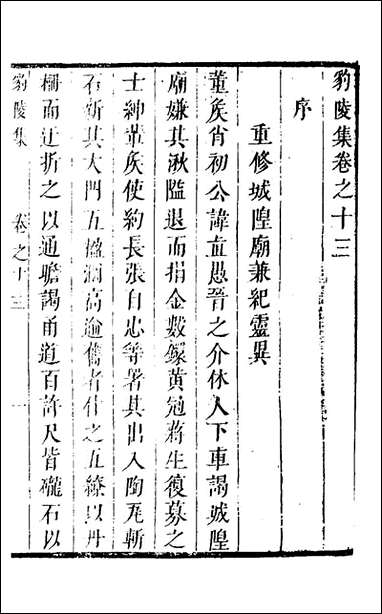 豹陵集卷之十三
序
重修城隍廟兼紀靈異
董矦肖初公諱直愚晉之介休人下車謁城隍
廟嫌其湫隘退而捐金數鍰黃冠蔣生復募之
士紳董矦使約長張自忠等署其出入陶瓦斬
石新其大門五楹濶高逾舊者什之五繚以丹
欄而迂折之以通瞻謁甬道百許尺皆礲石以
豹陵集
卷之十三
一